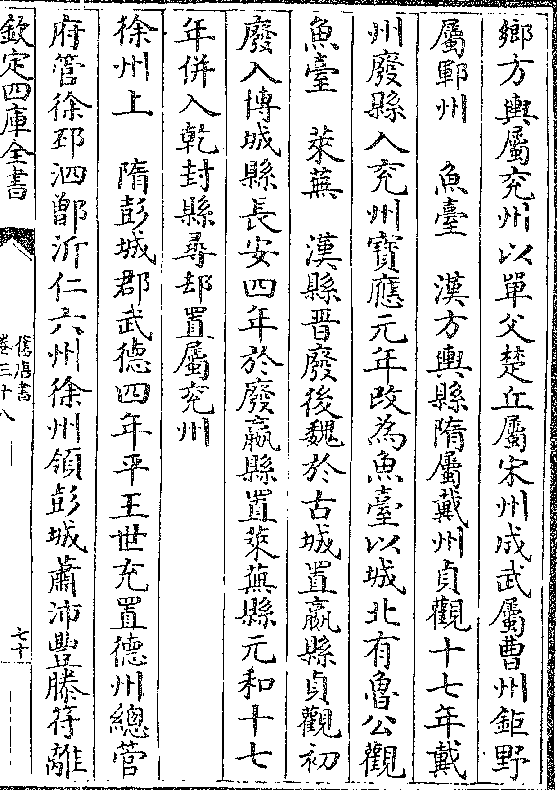 鄉方輿屬兖州以單父楚丘屬宋州成武屬曹州鉅野
屬鄆州　魚臺　漢方輿縣隋屬戴州貞觀十七年戴
州廢縣入兖州寶應元年改為魚臺以城北有魯公觀
魚臺　萊蕪　漢縣晋廢後魏於古城置嬴縣貞觀初
廢入博城縣長安四年於廢嬴縣置萊蕪縣元和十七
年併入乾封縣尋却置屬兖州
徐州上　隋彭城郡武德四年平王世充置德州總管
府管徐邳泗鄫沂仁六州徐州領彭城蕭沛豐滕符離
欽定四庫全書
舊唐書
卷三十八
七十